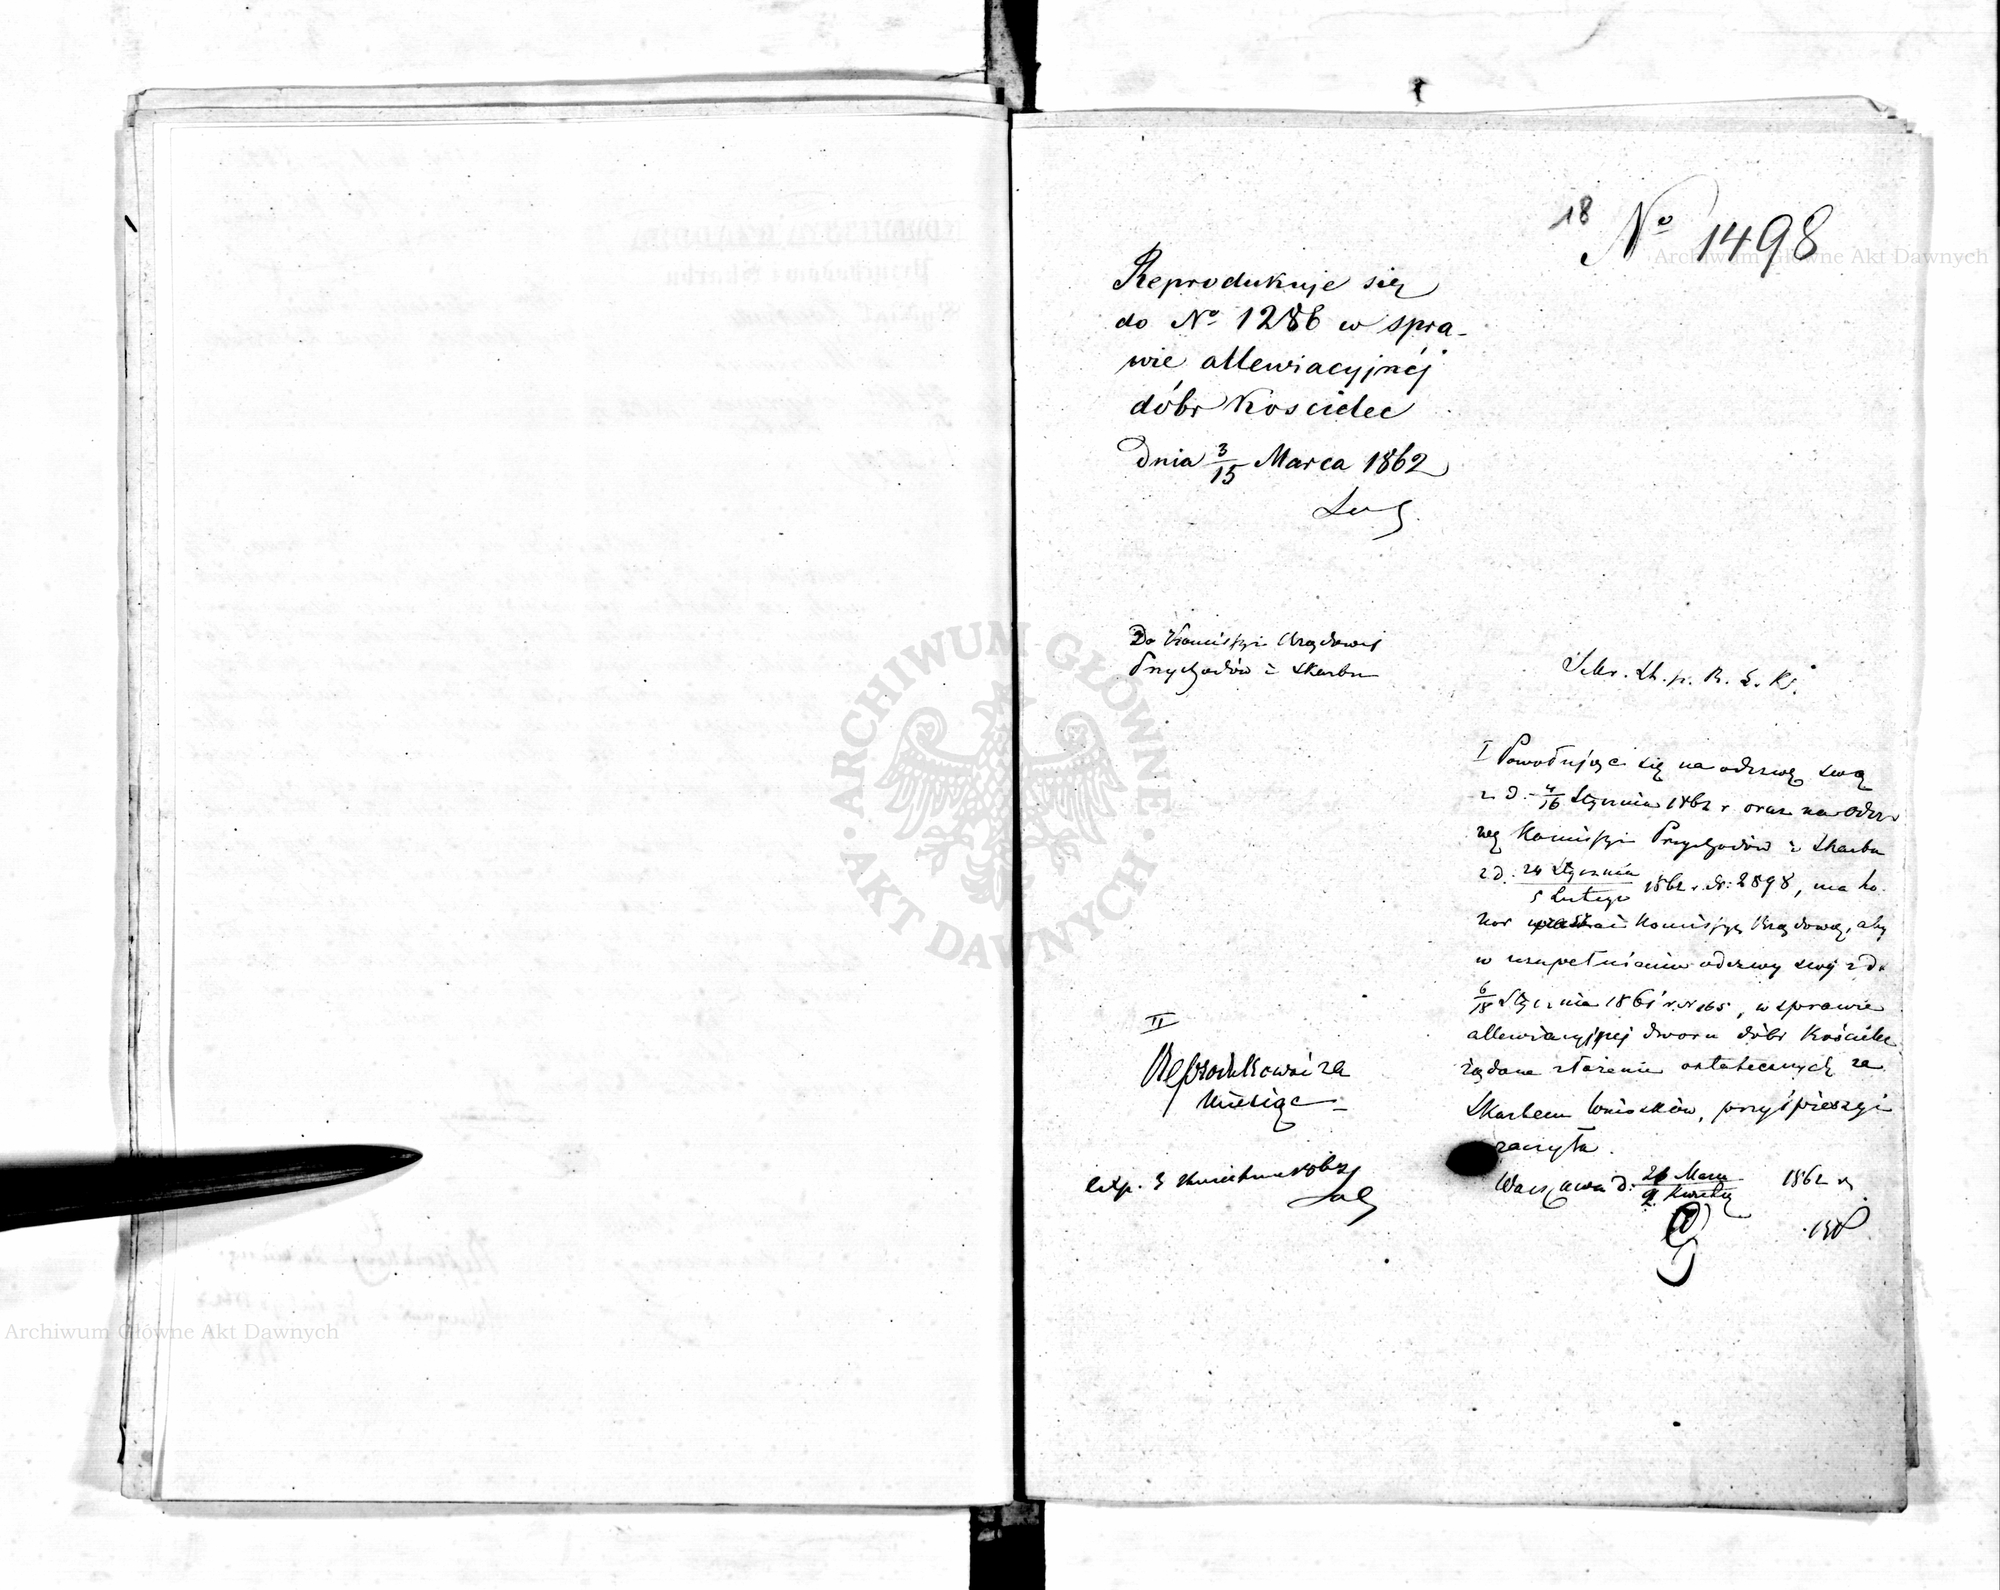 18 Nº 1498
Reprodukuje się
do Nº 1286 w spra-
wie allewiacyjnéj
dóbr Kościelec
Dnia 3/15 Marca 1862
Do Kommissyi Rządowej
Przychodów i Skarbu
I Powołując się na odezwę swą
z d. 4/16 Stycznia 1862 r oraz na odez-
wę Komissyi Przychodów i Skarbu
z d. 24 Stycznia / 5 Lutego 1862 r. Nr: 2898, ma ho-
nor Komissyę Rządową, aby
w uzupełnieniu odezwy swej z d.
6/18 Stycznia 1861 r. Nr 165, w sprawie
allewiacyjnej dworu dóbr Kościelec
żądane złożenie ostatecznych ze
Skarbem wniosków, przyśpieszyć
raczyła.
Warszawa d. Marca / Kwietnia 1862 r.
II
Reprodukować za
miesiąc
exp. 3 Kwietnia
ARCHIWUM GŁÓWNE
AKT DAWNYCH
Archiwum Główne Akt Dawnych
Archiwum Główne Akt Dawnych